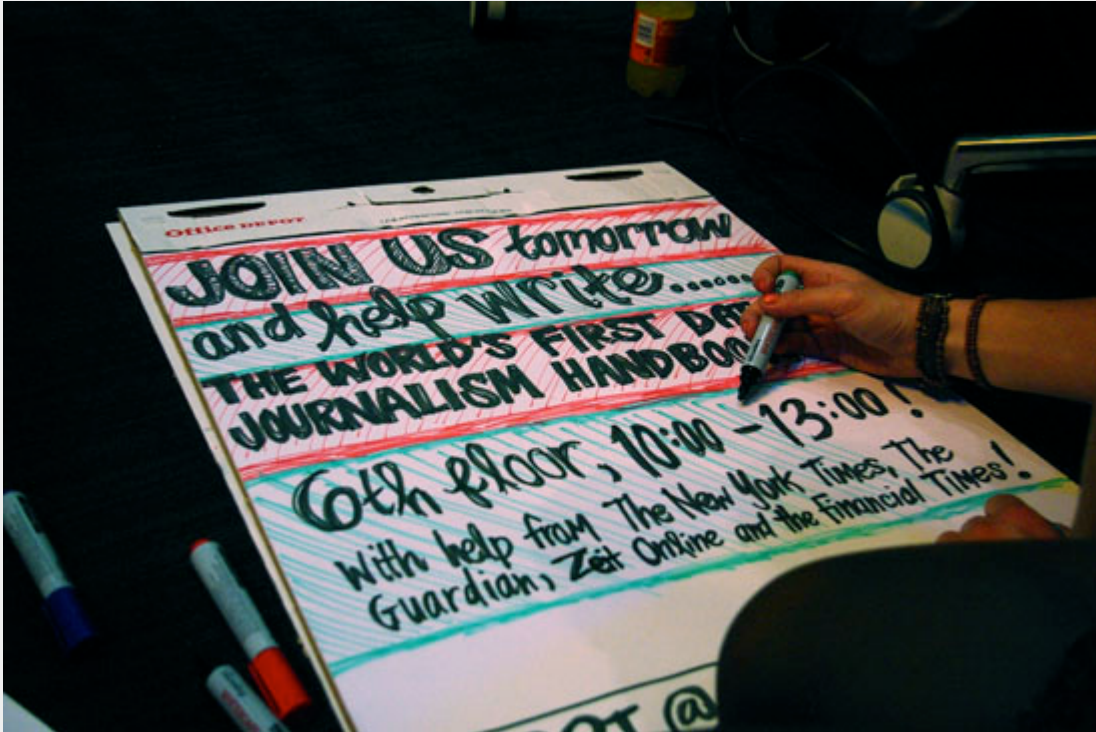 Office DEPOT
JOIN US tomorrow
and help write......
THE WORLD'S FIRST DAT
JOURNALISM HANDBOO
6th floor, 10:00 - 13:00!
with help from The New York Times, The
Guardian, Zeit Online and the Financial Times!
@